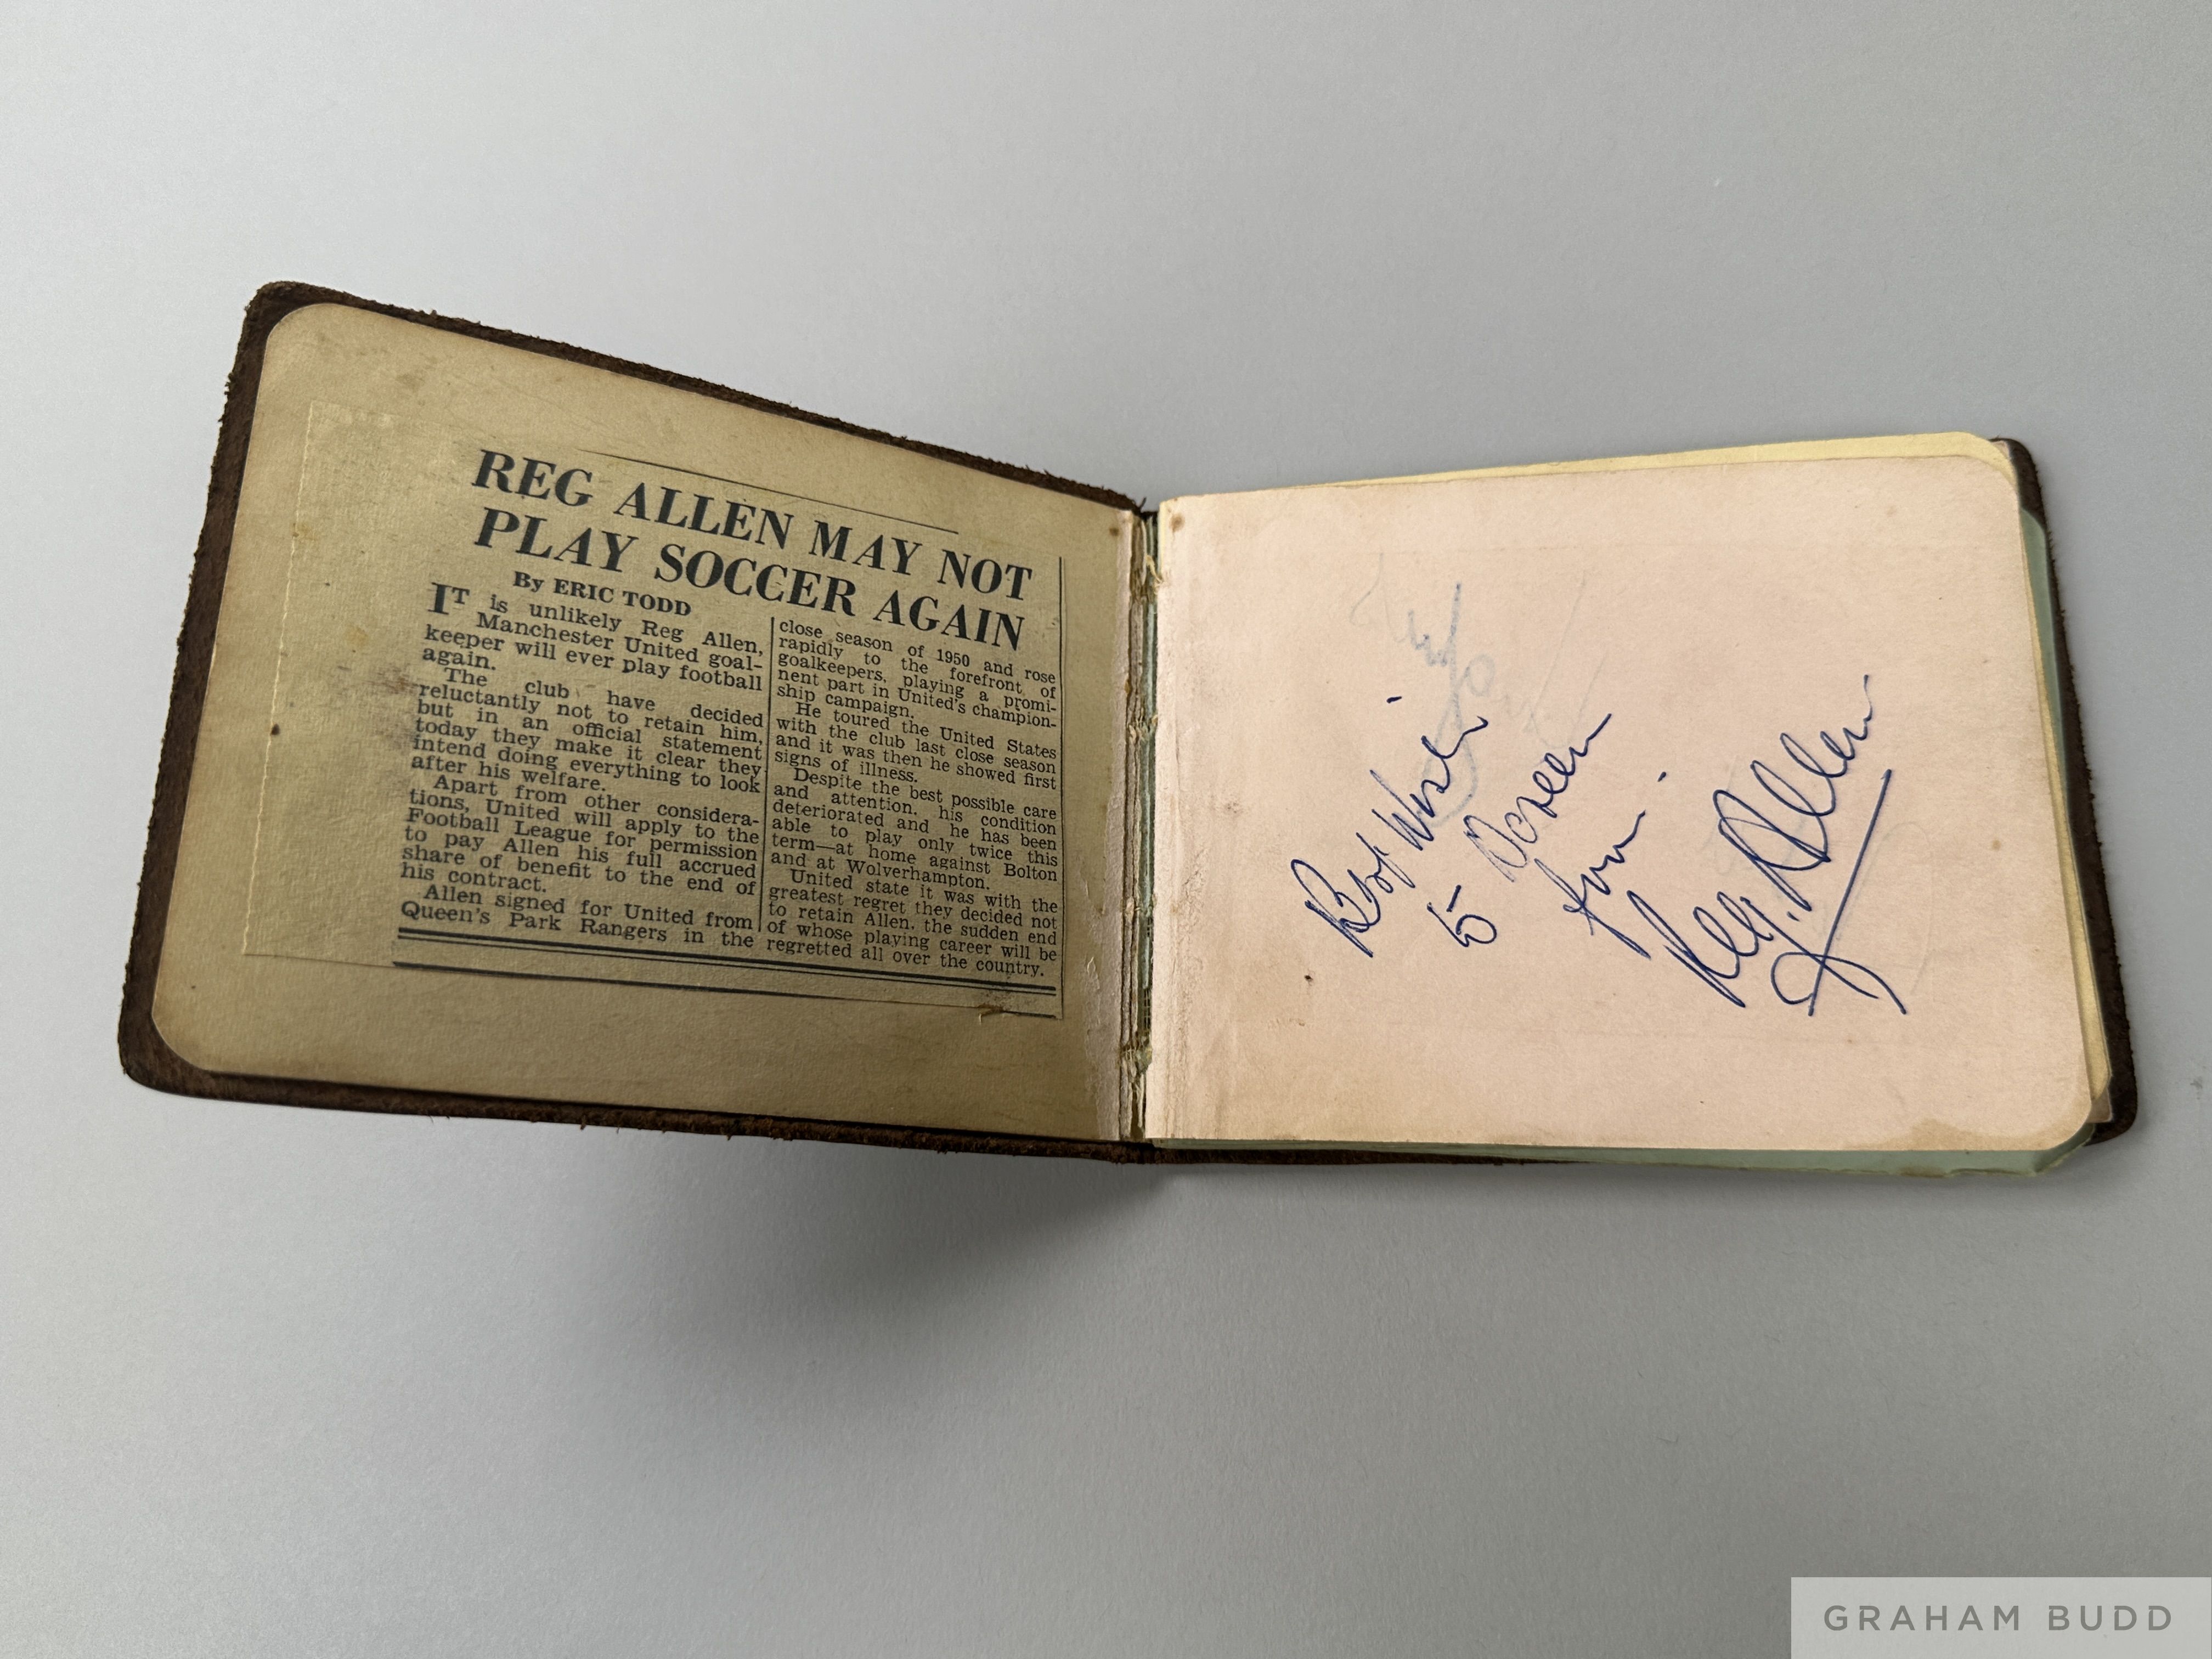 REG ALLEN MAY NOT
PLAY SOCCER AGAIN
By ERIC TODD
IT is unlikely Reg Allen,
Manchester United goal-
keeper will ever play football
again.
The club have decided
reluctantly not to retain him,
but in an official statement
today they make it clear they
intend doing everything to look
after his welfare.
Apart from other considera-
tions, United will apply to the
Football League for permission
to pay Allen his full accrued
share of benefit to the end of
his contract.
Allen signed for United from
Queen's Park Rangers in the
close season of 1950 and rose
rapidly to the forefront of
goalkeepers, playing a promi-
nent part in United's champion-
ship campaign.
He toured the United States
with the club last close season
and it was then he showed first
signs of illness.
Despite the best possible care
and attention, his condition
deteriorated and he has been
able to play only twice this
term—at home against Bolton
and at Wolverhampton.
United state it was with the
greatest regret they decided not
to retain Allen, the sudden end
of whose playing career will be
regretted all over the country.
Best Wishes
to Doreen
from.
Reg. Allen
GRAHAM BUDD